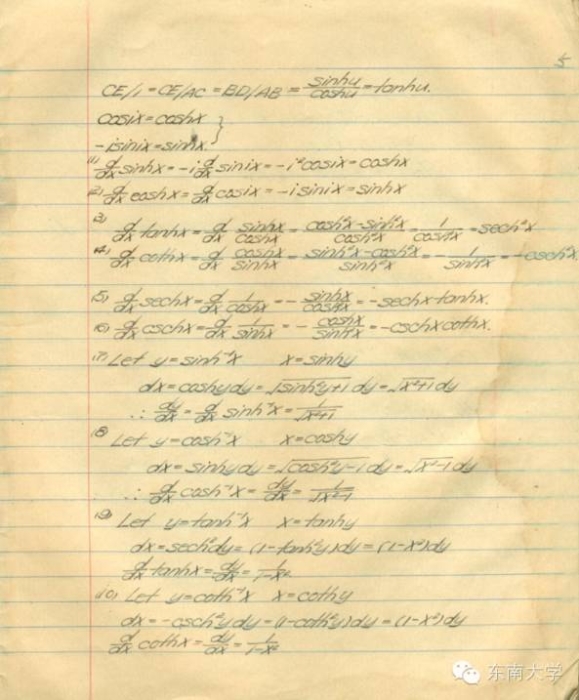 5
CE/1 = CE/AC = BD/AB = sinhu/coshu = tanhu.
cosix = coshx }
-isinix = sinhx.
(1) d/dx sinhx = -i d/dx sinix = -i² cosix = coshx
(2) d/dx coshx = d/dx cosix = -isinix = sinhx
3) d/dx tanhx = d/dx sinhx/coshx = cosh²x-sinh²x/cosh²x = 1/cosh²x = sech²x
(4) d/dx cothx = d/dx coshx/sinhx = sinh²x-cosh²x/sinh²x = -1/sinh²x = -csch²x
(5) d/dx sechx = d/dx 1/coshx = -sinhx/cosh²x = -sechx tanhx.
(6) d/dx cschx = d/dx 1/sinhx = -coshx/sinh²x = -cschx cothx.
(7) Let y=sinh⁻¹x x=sinhy
dx = coshy dy = √sinh²y+1 dy = √x²+1 dy
∴ dy/dx = d/dx sinh⁻¹x = 1/√x²+1
(8) Let y=cosh⁻¹x x=coshy
dx = sinhy dy = √cosh²y-1 dy = √x²-1 dy
∴ d/dx cosh⁻¹x = dy/dx = 1/√x²-1
(9) Let y=tanh⁻¹x x=tanhy
dx = sech²dy = (1-tanh²y)dy = (1-x²)dy
d/dx tanhx = dy/dx = 1/1-x²
(10) Let y=coth⁻¹x x=cothy
dx = -csch²y dy = (1-coth²y)dy = (1-x²)dy
d/dx cothx = dy/dx = 1/1-x²
东南大学